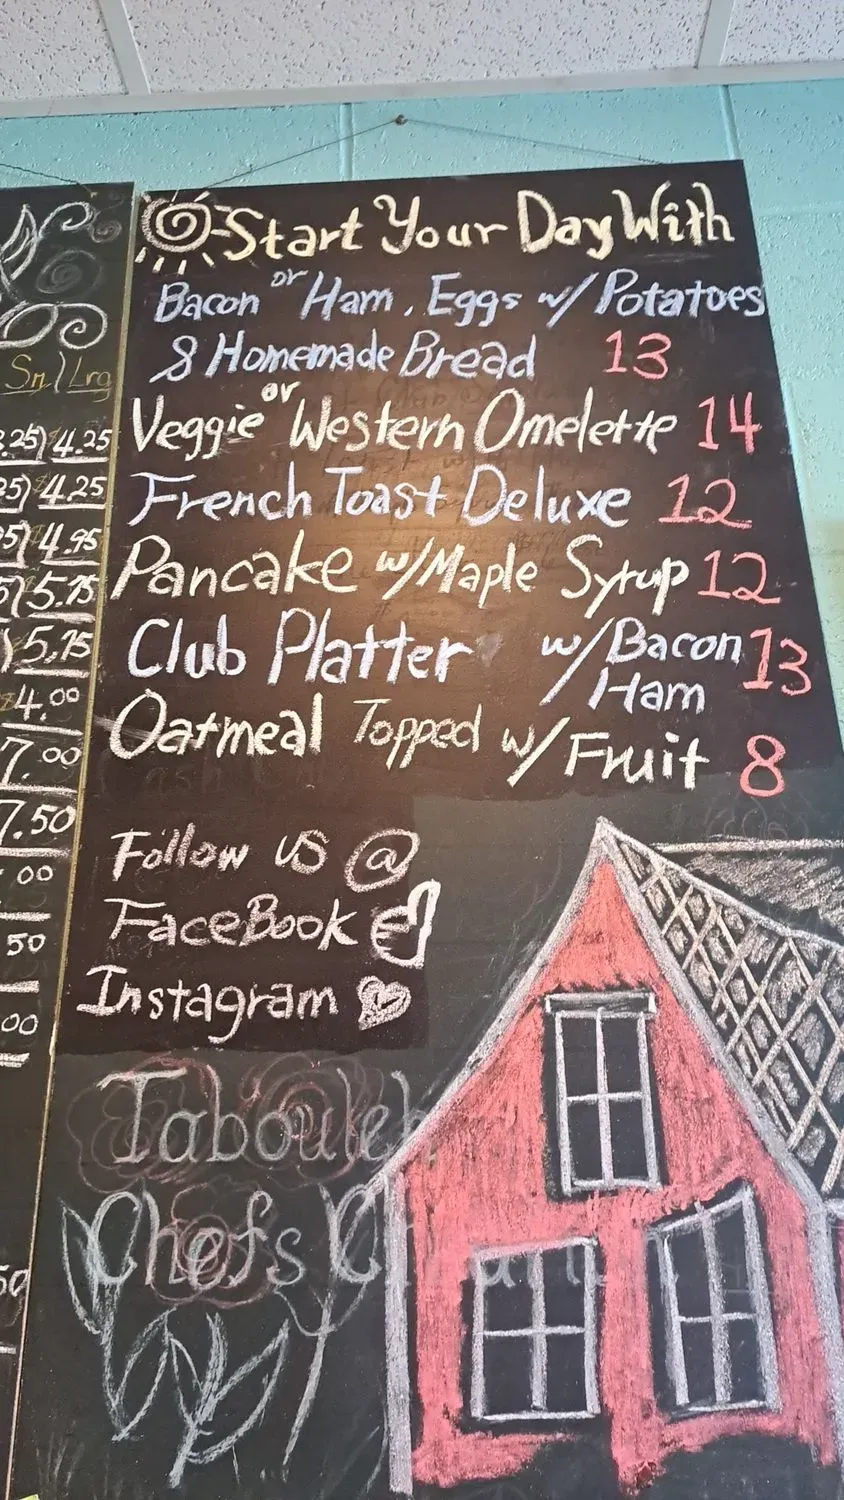 Start Your Day With
Bacon or Ham, Eggs w/ Potatoes
& Homemade Bread 13
Veggie or Western Omelette 14
French Toast Deluxe 12
Pancake w/Maple Syrup 12
Club Platter w/Bacon 13
Ham
Oatmeal Topped w/ Fruit 8
Follow us @
FaceBook
Instagram
Tabouleh
Chefs
Sm/Lrg
4.25
4.25
4.95
5.75
5.75
4.00
7.00
7.50
00
50
00
50